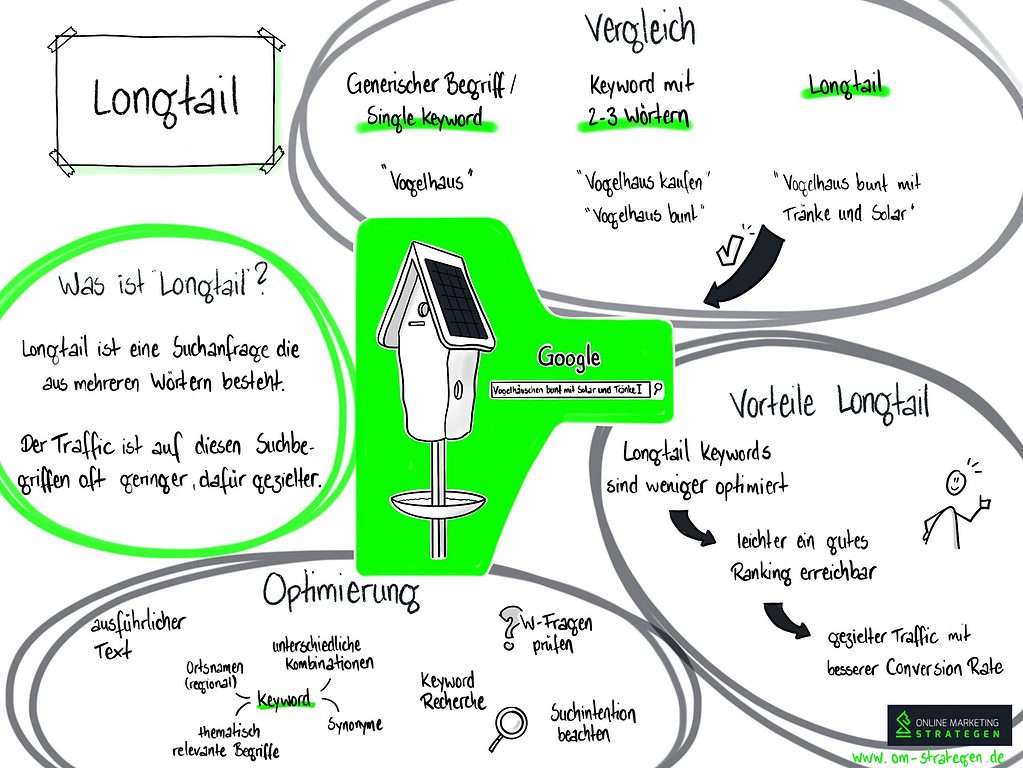 Longtail
Vergleich
Generischer Begriff /
Single Keyword
"Vogelhaus"
Keyword mit
2-3 Wörtern
"Vogelhaus kaufen"
"Vogelhaus bunt"
Longtail
"Vogelhaus bunt mit
Tränke und Solar"
Was ist "Longtail"?
Longtail ist eine Suchanfrage die
aus mehreren Wörtern besteht.
Der Traffic ist auf diesen Suchbe-
griffen oft geringer, dafür gezielter.
Google
Vogelhäuschen bunt mit Solar und Tränke
Vorteile Longtail
Longtail Keywords
sind weniger optimiert
leichter ein gutes
Ranking erreichbar
gezielter Traffic mit
besserer Conversion Rate
Optimierung
ausführlicher
Text
Ortsnamen
(regional)
unterschiedliche
Kombinationen
Keyword
thematisch
relevante Begriffe
Synonyme
Keyword
Recherche
? W-Fragen
prüfen
Suchintention
beachten
ONLINE MARKETING
STRATEGEN
www.om-strategen.de